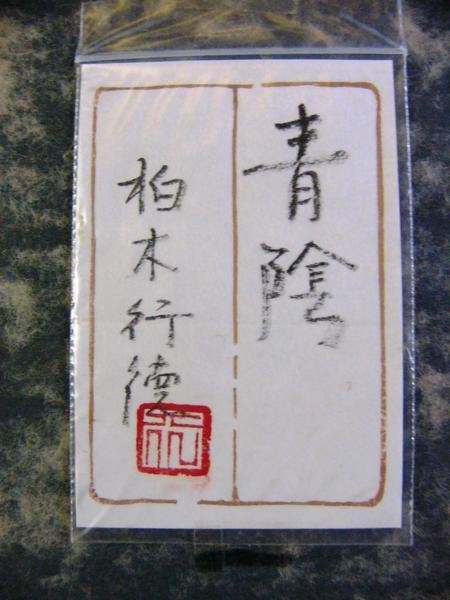 青陰
柏木行德